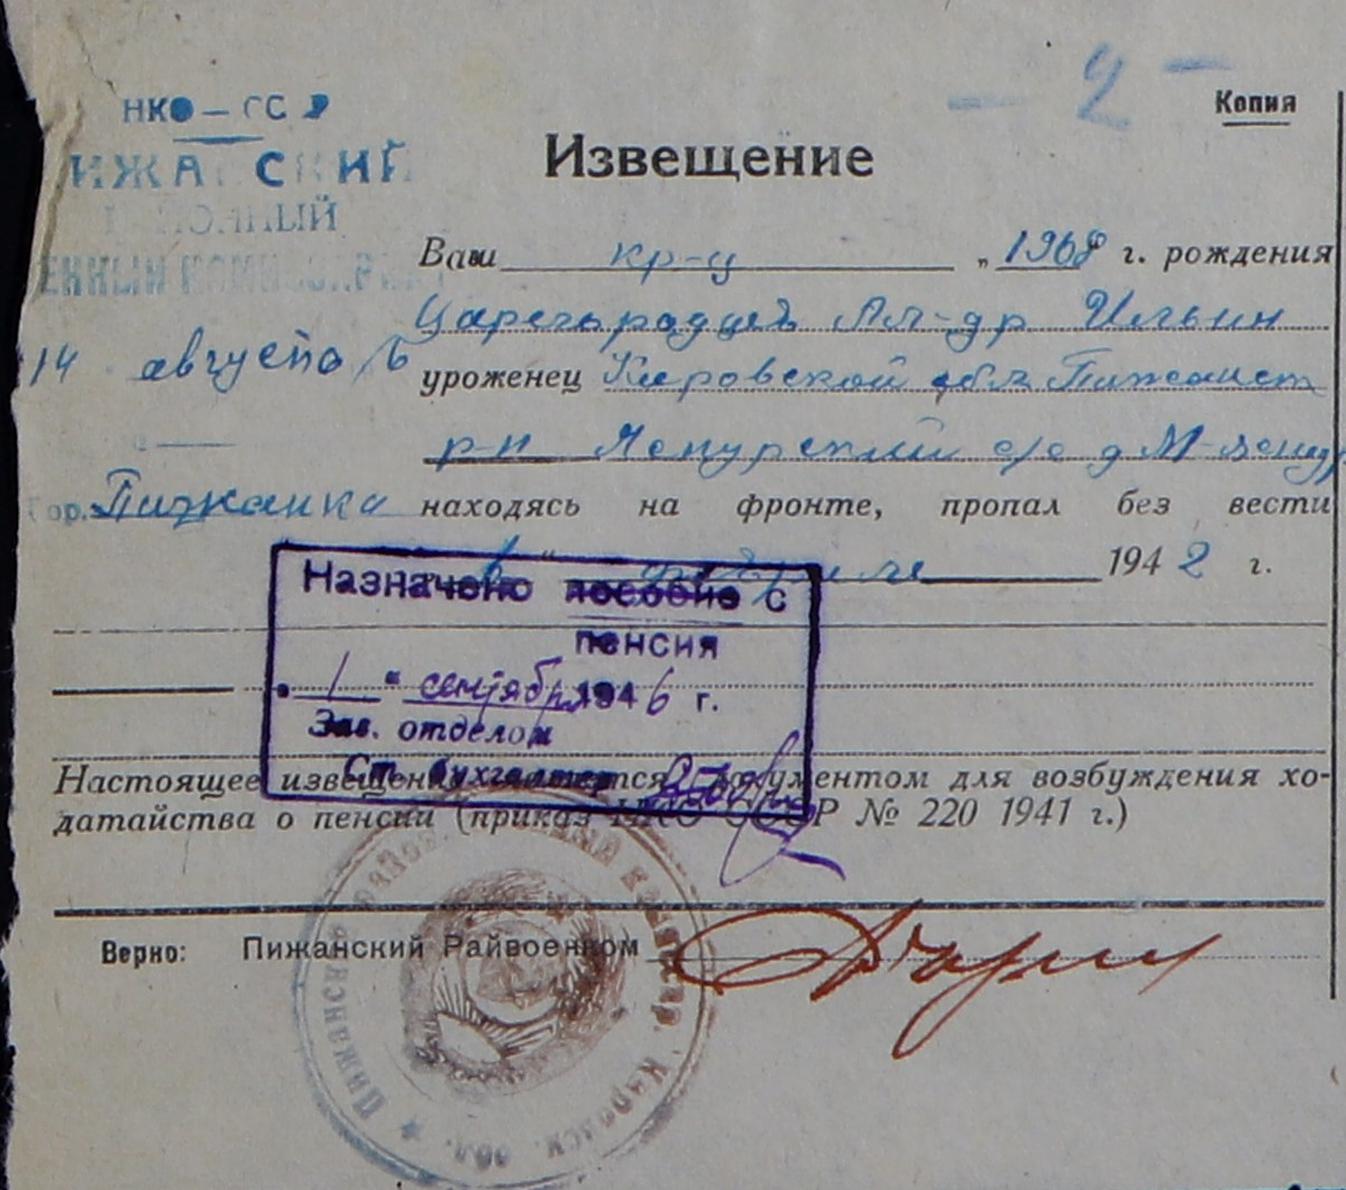 — 2 —
Копия
НКО — СССР
ПИЖАНСКИЙ
РАЙОННЫЙ
ВОЕННЫЙ КОМИССАРИАТ
14 августа
Гор. Пижанка
Извещение
Ваш кр-ц „1908 г. рождения
Царегородцев Ал-др Ильич
уроженец Кировской обл Пижанск
р-н с/с д
находясь на фронте, пропал без вести
в " феврале 1942 г.
Назначено пособие с
пенсия
„ 1 " сентября 1946 г.
Зав. отделом
Ст. бухгалтер
Настоящее извещение является документом для возбуждения хо-
датайства о пенсии (приказ НКО СССР № 220 1941 г.)
Верно: Пижанский Райвоенком
Пижанский районный военный комиссар. Кировск. обл.